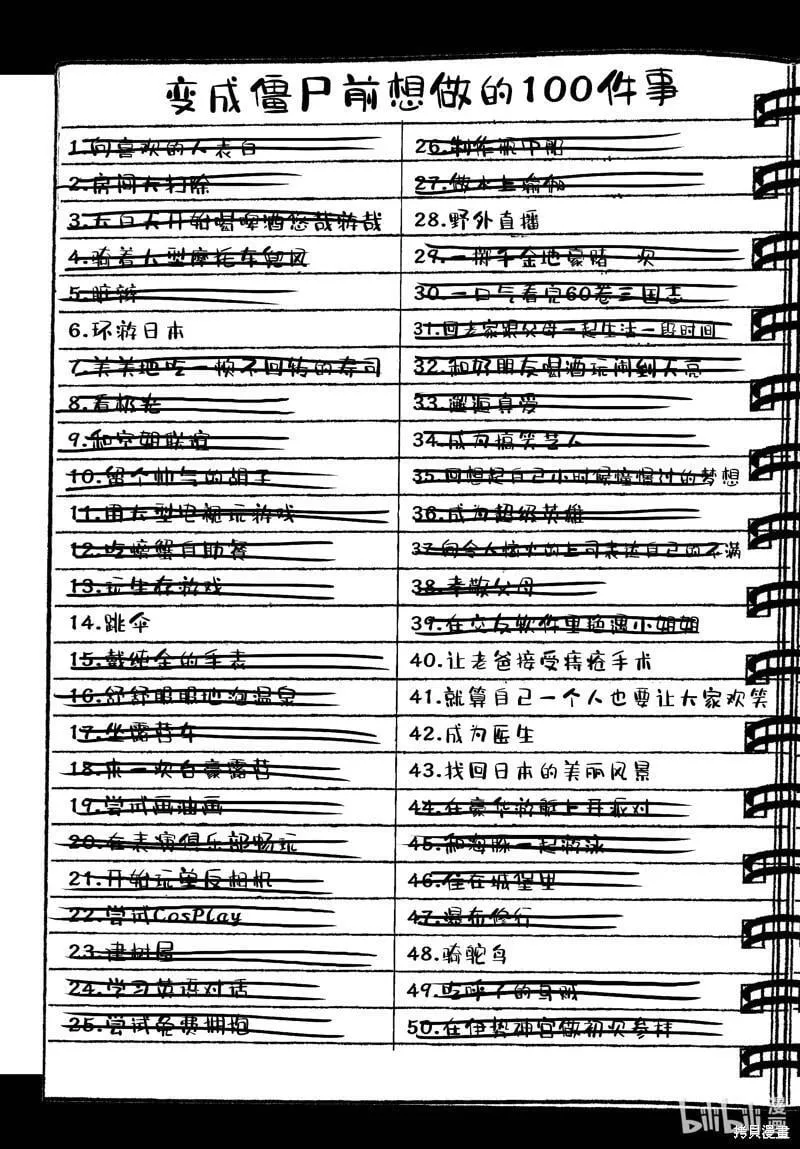 变成僵尸前想做的100件事
1.向喜欢的人表白
2.房间大扫除
3.大白天开始喝啤酒悠哉游哉
4.骑着大型摩托车兜风
5.脏辫
6.环游日本
7.美美地吃一顿不回转的寿司
8.看极光
9.和空姐联谊
10.留个帅气的胡子
11.用大型电视玩游戏
12.吃螃蟹自助餐
13.玩生存游戏
14.跳伞
15.戴纯金的手表
16.舒舒服服地泡温泉
17.坐露营车
18.来一次自豪露营
19.尝试画油画
20.在表演俱乐部畅玩
21.开始玩单反相机
22.尝试CosPlay
23.建树屋
24.学习英语对话
25.尝试免费拥抱
26.制作瓶中船
27.做水上瑜伽
28.野外直播
29.一掷千金地豪赌一次
30.一口气看完60卷三国志
31.回老家跟父母一起生活一段时间
32.和好朋友喝酒玩闹到天亮
33.邂逅真爱
34.成为搞笑艺人
35.回想起自己小时候憧憬过的梦想
36.成为超级英雄
37.向令人恼火的上司表达自己的不满
38.孝敬父母
39.在交友软件里艳遇小姐姐
40.让老爸接受痔疮手术
41.就算自己一个人也要让大家欢笑
42.成为医生
43.找回日本的美丽风景
44.在豪华游艇上开派对
45.和海豚一起游泳
46.住在城堡里
47.瀑布修行
48.骑鸵鸟
49.吃呼了的乌贼
50.在伊势神宫做初次参拜
bilibili漫画
拷贝漫畫